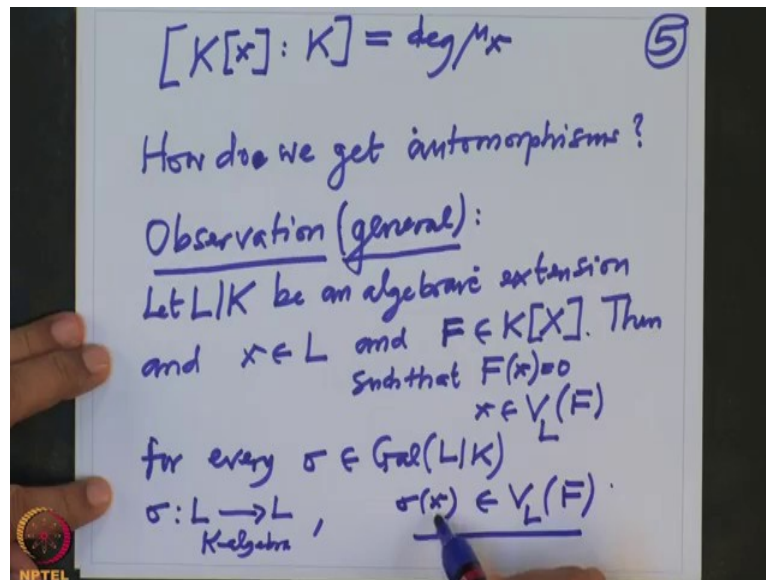 [K[x] : K] = deg μx
⑤
How do we get automorphisms?
Observation (general):
Let L|K be an algebraic extension
and x ∈ L and F ∈ K[X]. Then
such that F(x)=0
x ∈ V_L(F)
for every σ ∈ Gal(L|K)
σ: L → L , σ(x) ∈ V_L(F).
K-algebra
NPTEL